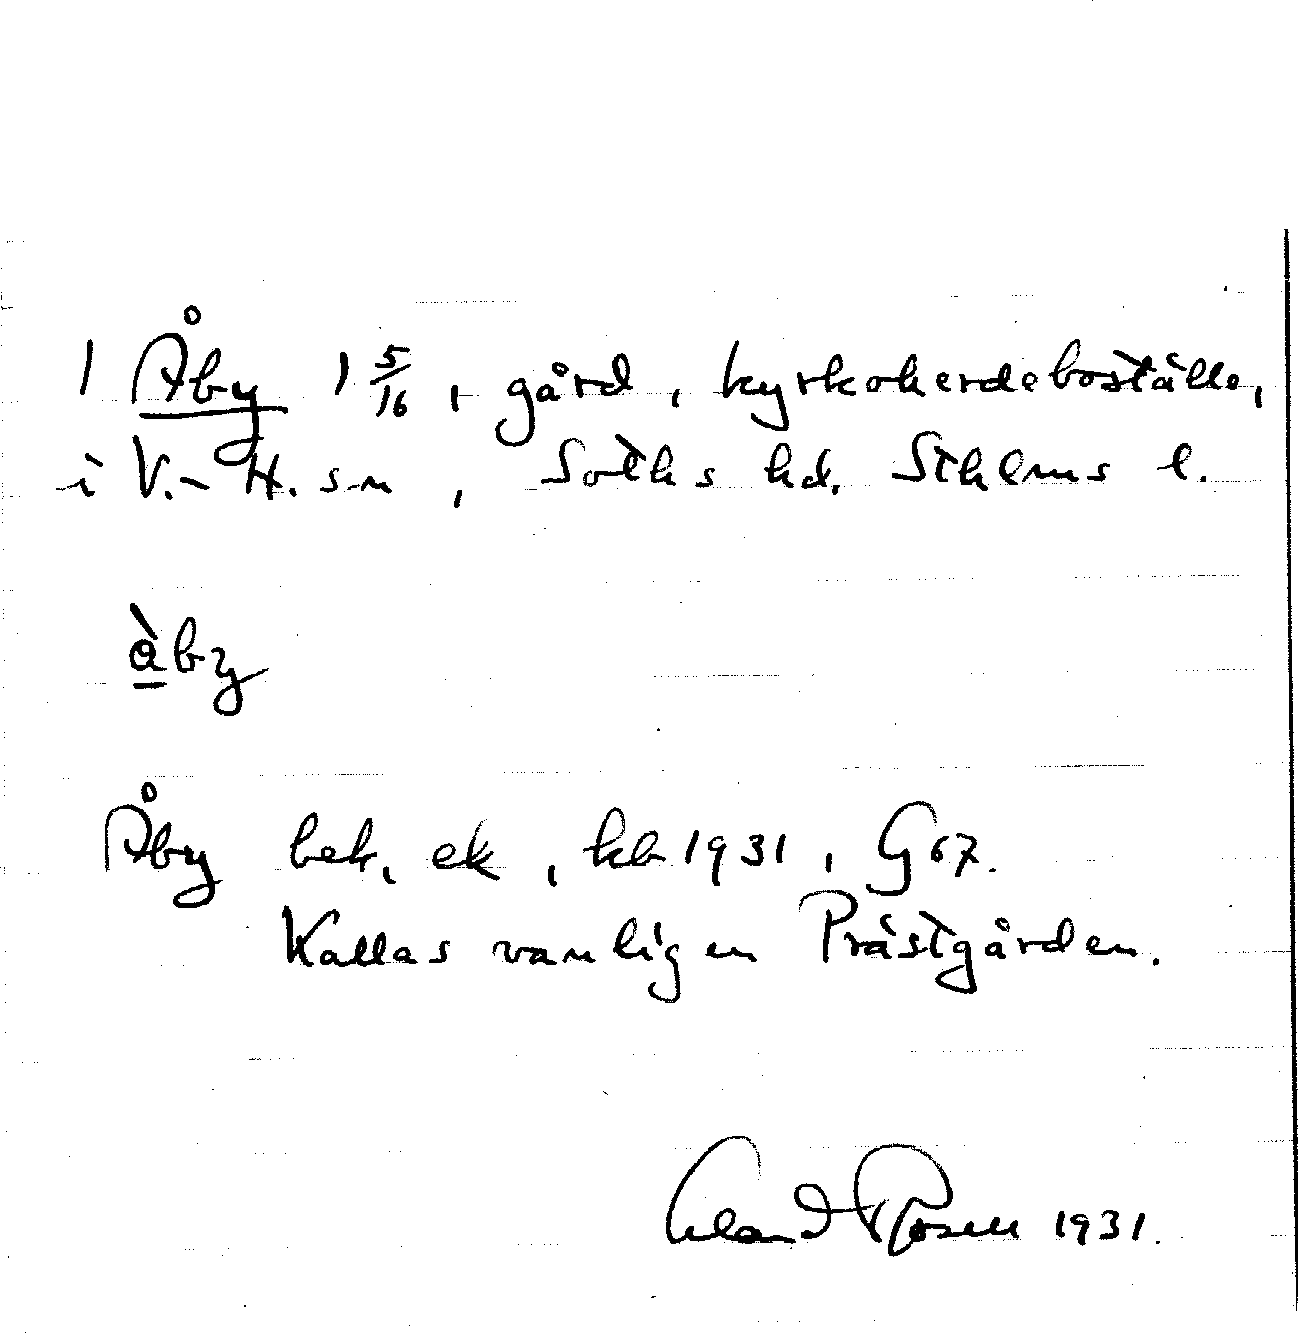 1 Åby 1 5/16, gård, kyrkoherdeboställe,
i V.-H. sn, Soths hd. Sthlms l.
åby
Åby bek. ek, kb 1931, G67.
Kallas vanligen Prästgården.
Erland Rosell 1931.